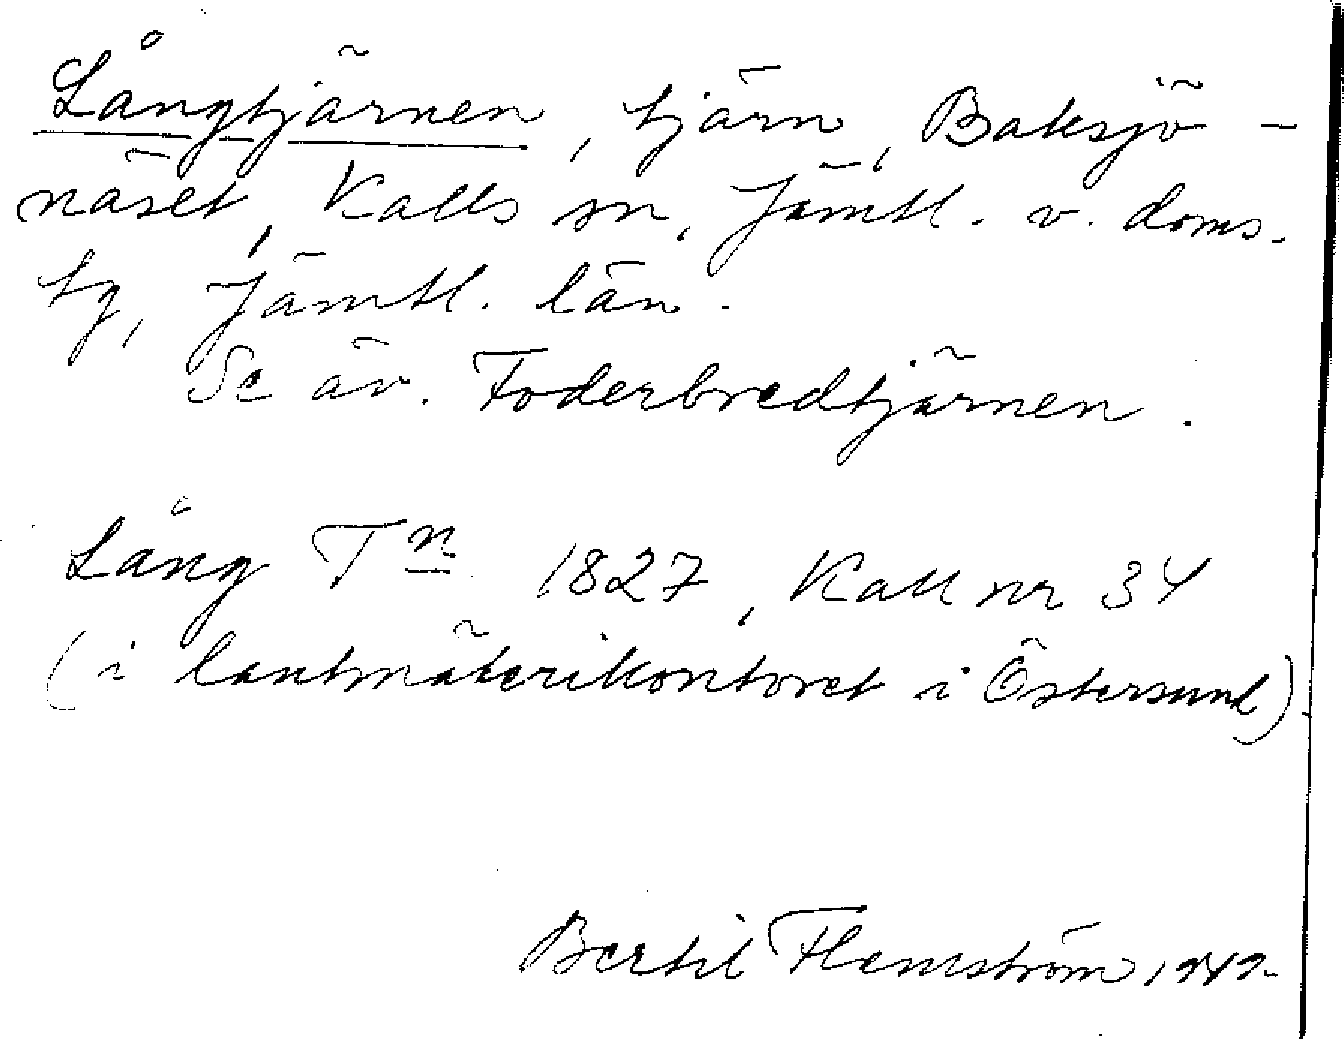 Långtjärnen, tjärn, Baksjö-
näset, Kalls sn, Jämtl. v. doms.
tg, Jämtl. län.
Se äv. Foderbredtjärnen.
Lång Tn 1827, Kall nr 34
(i lantmäterikontoret i Östersund)
Bertil Flemström 1949